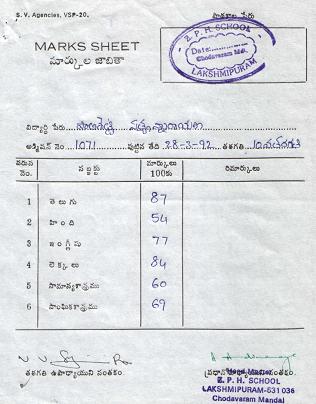 S. V. Agencies, VSP-20.
పాఠశాల పేరు
MARKS SHEET
మార్కుల జాబితా
Z. P. H. SCHOOL
Date:
Chodavaram Md.
LAKSHMIPURAM
విద్యార్థి పేరు
అడ్మిషన్ నెం. 1071 పుట్టిన తేది 28-3-92 తరగతి
వరుస నెం. సబ్జక్టు మార్కులు 100కు రిమార్కులు
1 తెలుగు 87
2 హింది 54
3 ఇంగ్లీషు 77
4 లెక్కలు 84
5 సామాన్యశాస్త్రము 60
6 సాంఘికశాస్త్రము 69
తరగతి ఉపాధ్యాయుని సంతకం.
ప్రధానోపాధ్యాయుని సంతకం.
Head Master
Z. P. H. SCHOOL
LAKSHMIPURAM-531 036
Chodavaram Mandal